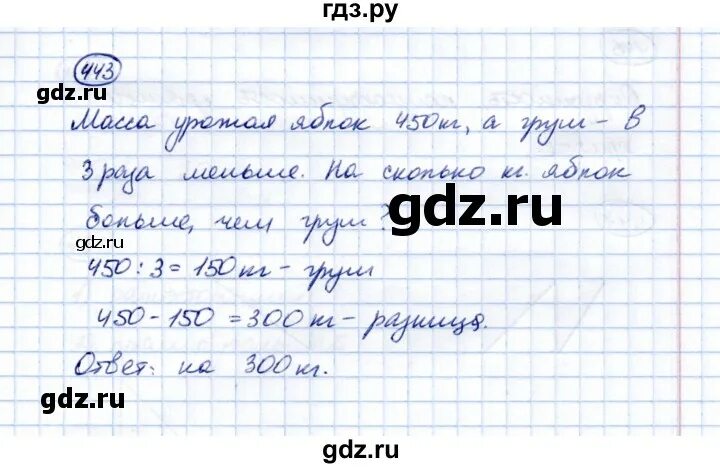 гдз.ру
443
gdz.ru
Масса урожая яблок 450кг, а груш – в
3 раза меньше. На сколько кг. яблок
gdz.ru
больше, чем груш?
gdz.ru
450:3=150кг – груш
450-150=300кг – разница.
Ответ: на 300кг.
gdz.ru
gdz.ru
gdz.ru